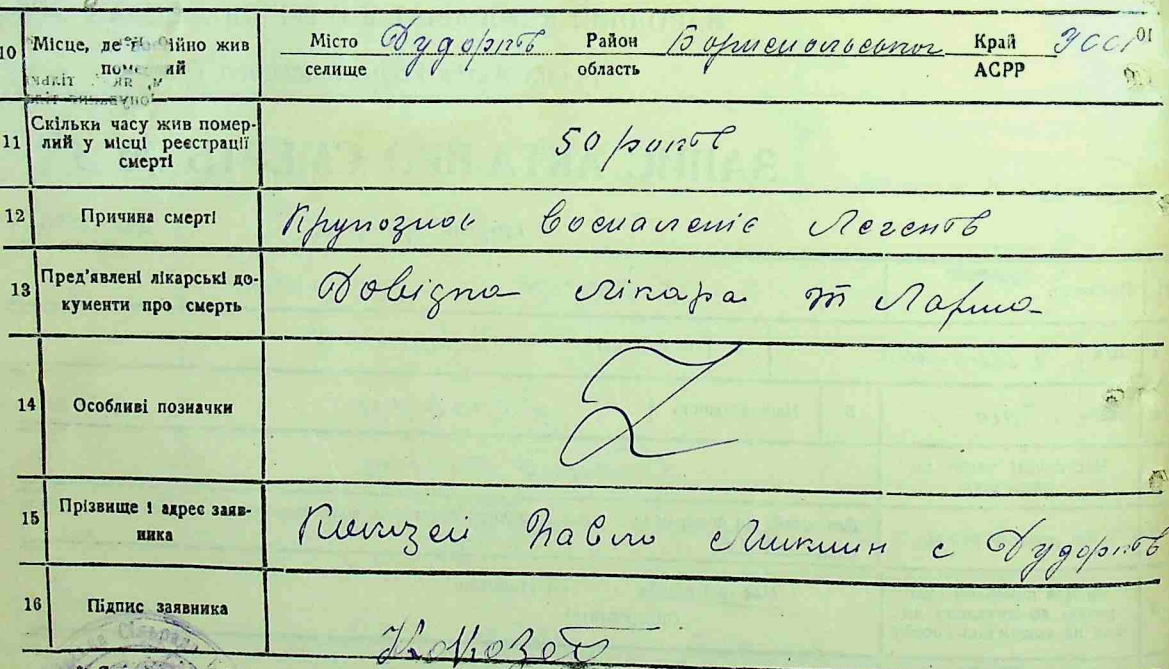 10 Місце, де постійно жив померлий Місто селище Дударків Район область Бориспольського Край АСРР УССР
11 Скільки часу жив померлий у місці реєстрації смерті 50 років
12 Причина смерті Крупозное Воспаленіе Легенів
13 Пред'явлені лікарські документи про смерть Довідка лікара
14 Особливі позначки Z
15 Прізвище і адрес заявника Павло с Дударків
16 Підпис заявника